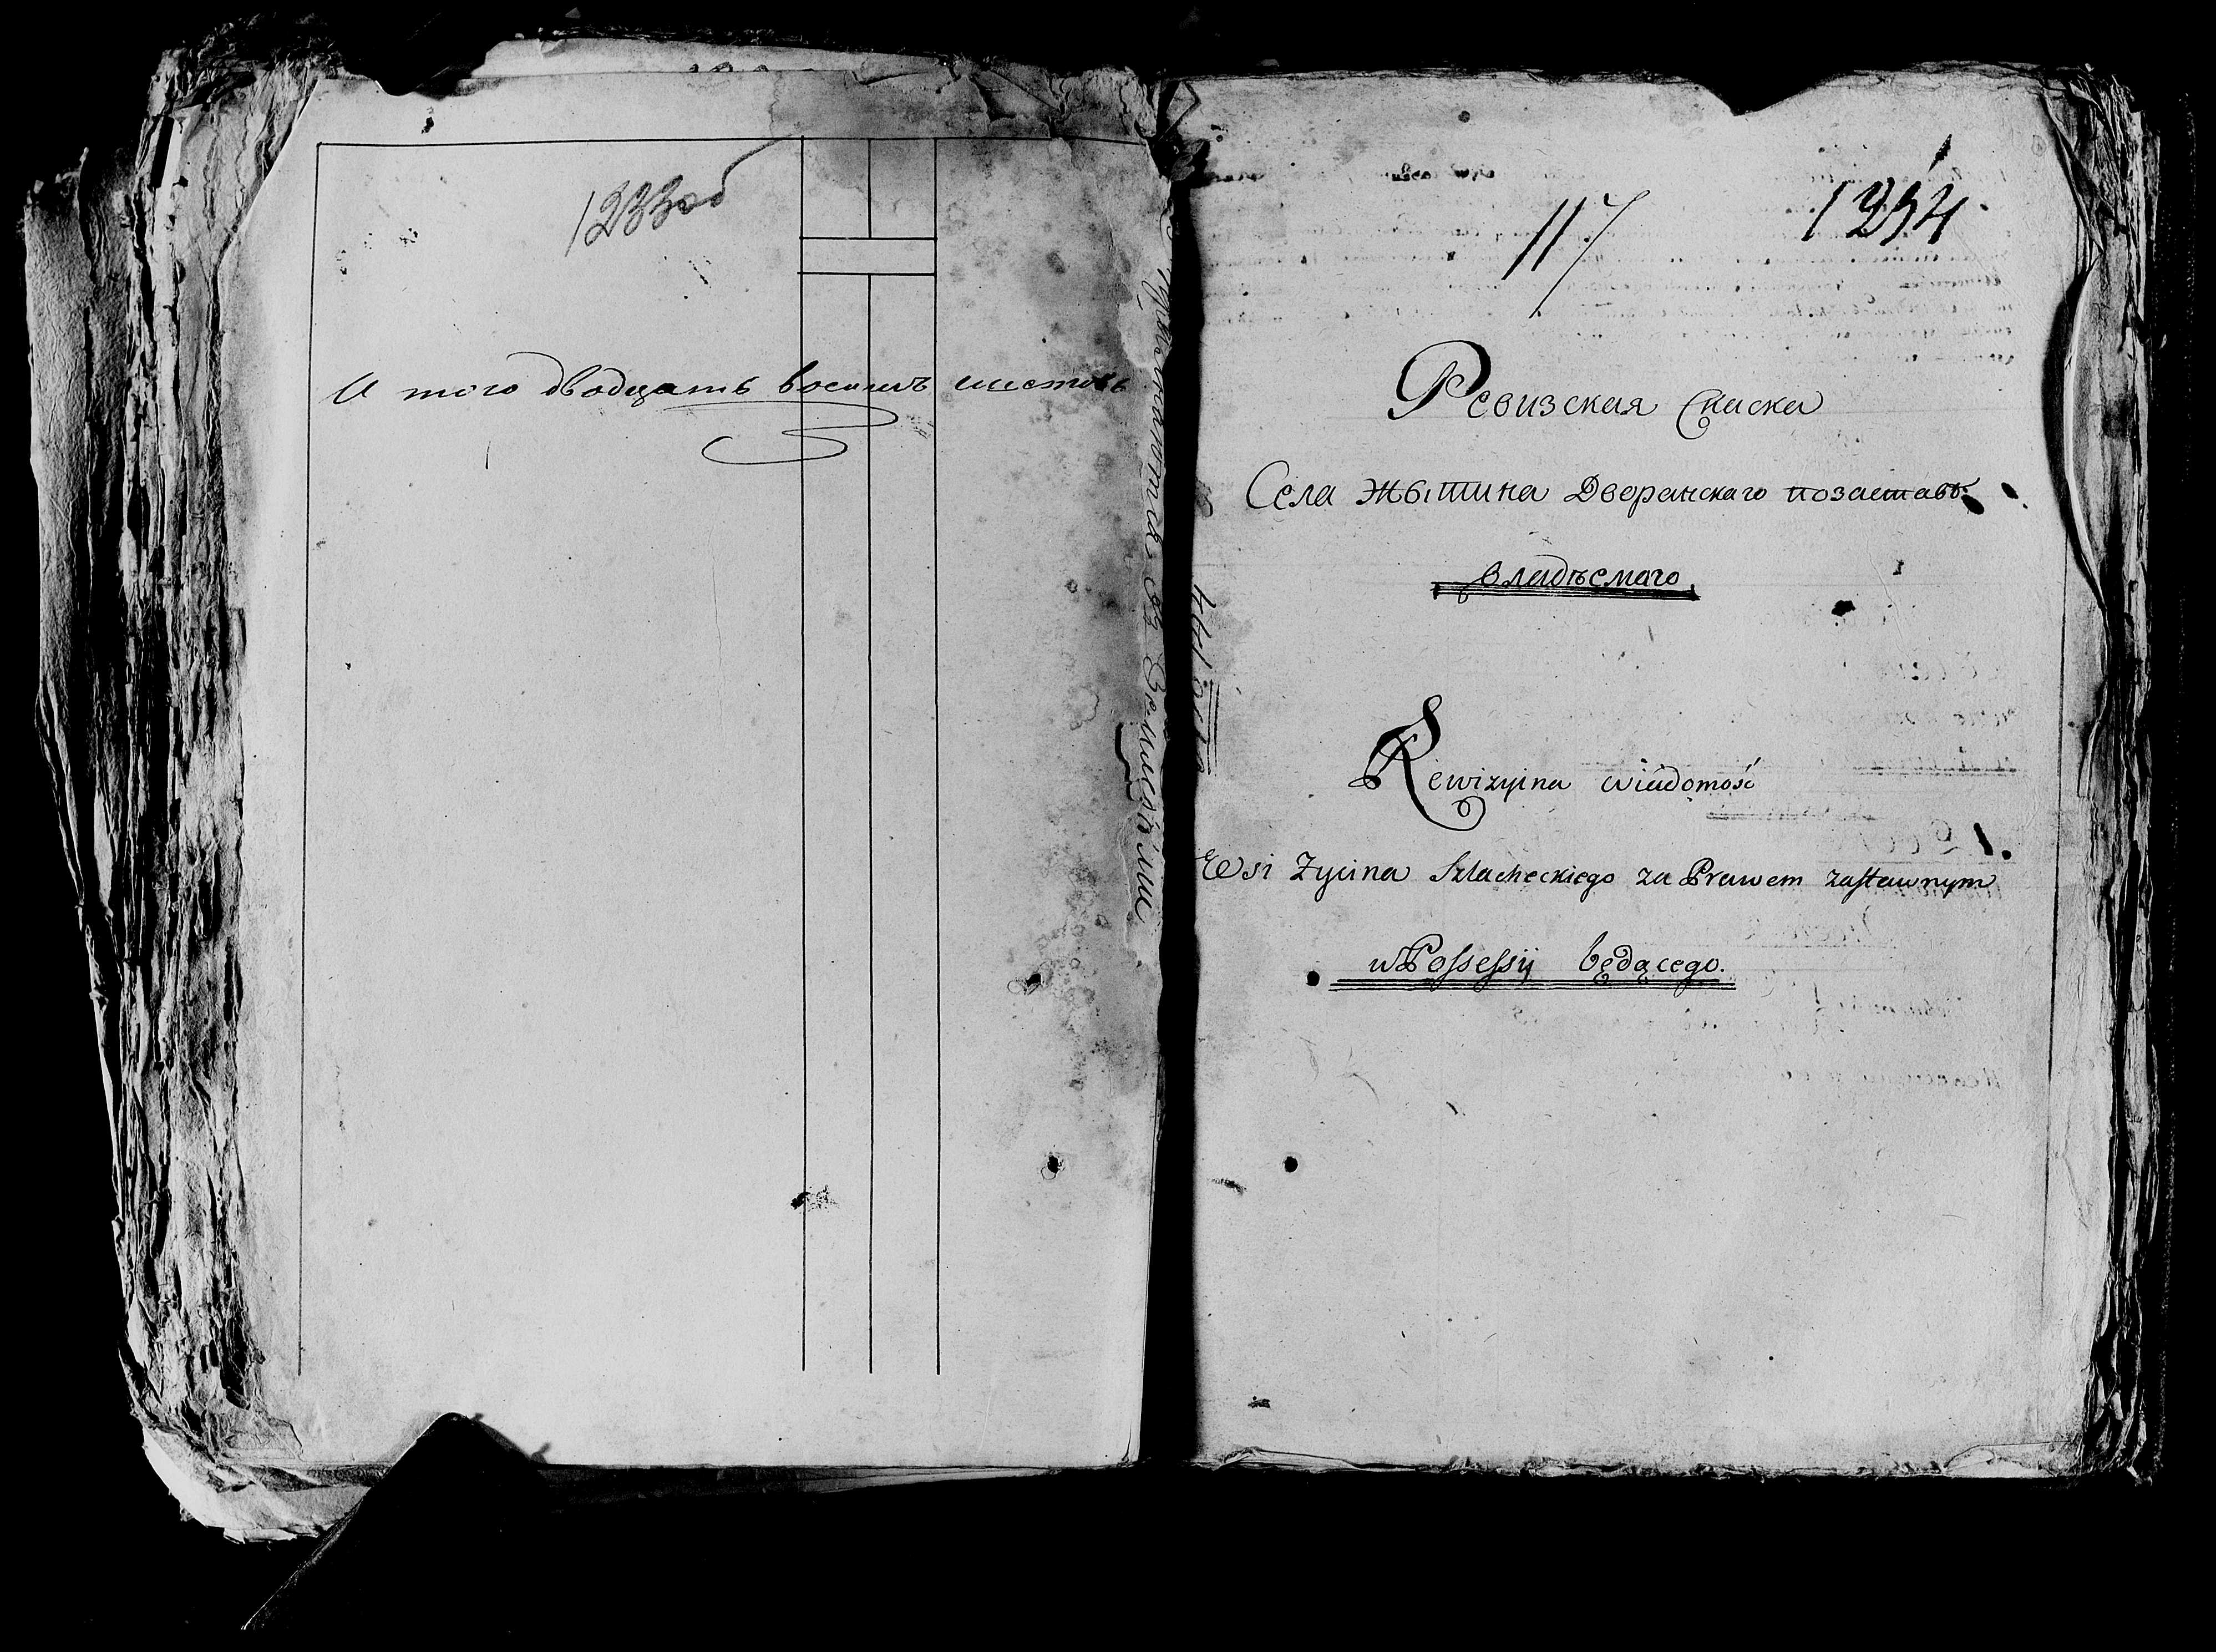 1233об
И того двадцать восемь листовъ
117
1234
Ревизская Скаска
Села Жытина Дворанскаго позаставѣ
владѣемаго
Rewizyina wiadomość
Wsi Zycina Szlacheckiego za Prawem zastawnym
w Possessij będącego.